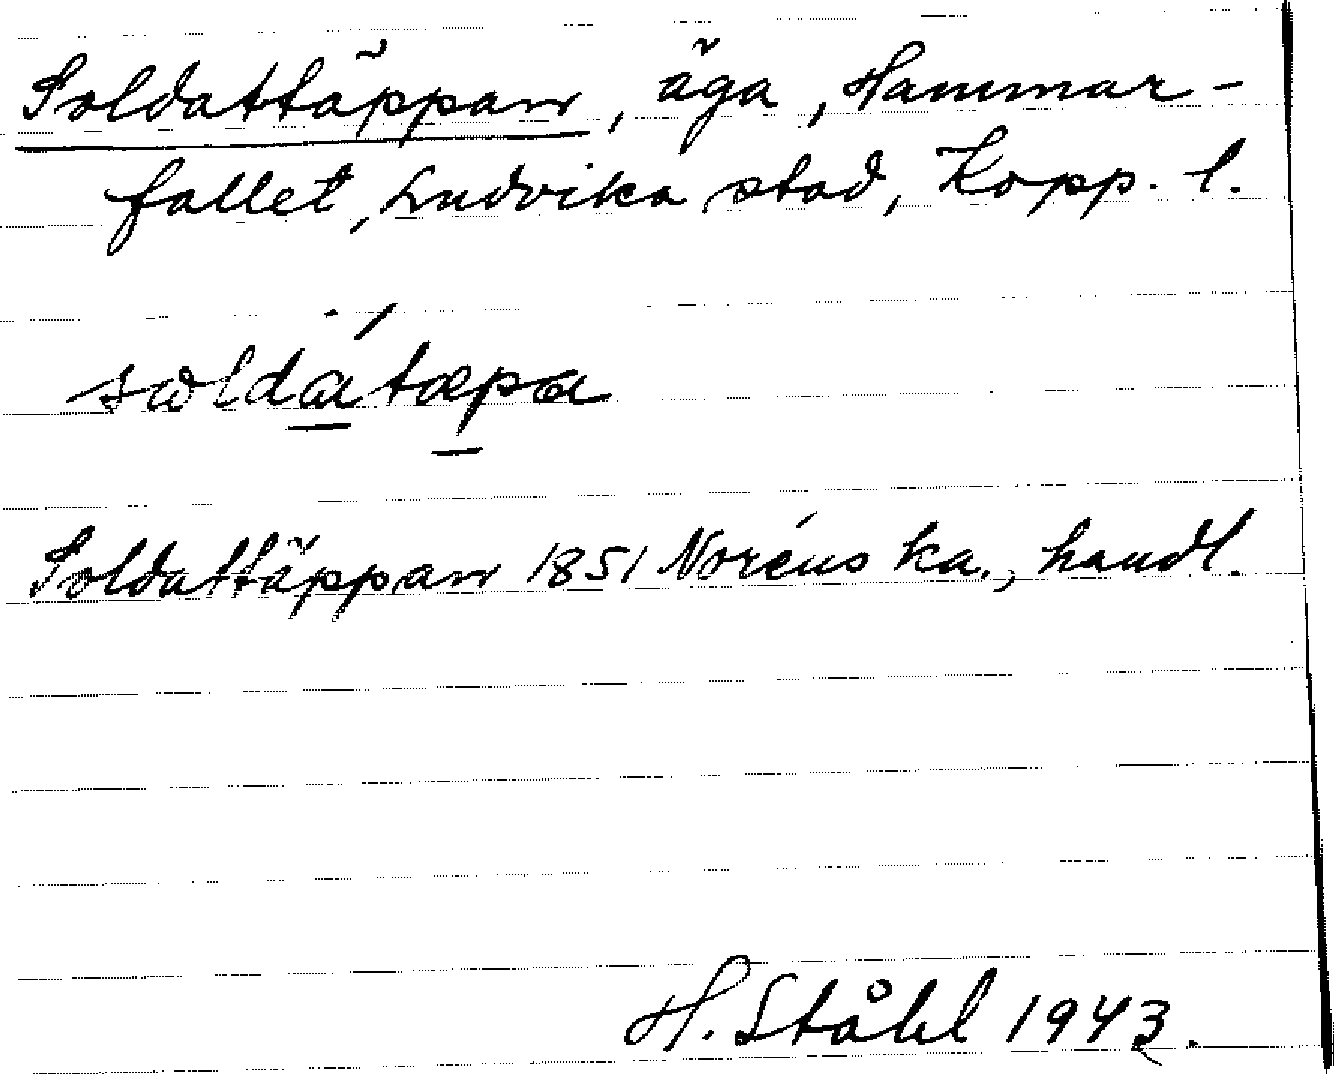 Soldattäppan, äga, Hammar-
fallet, Ludvika stad, Kopp. l.
søldátæpa
Soldattäppan 1851 Noréns ka., handl.
H. Ståhl 1943.